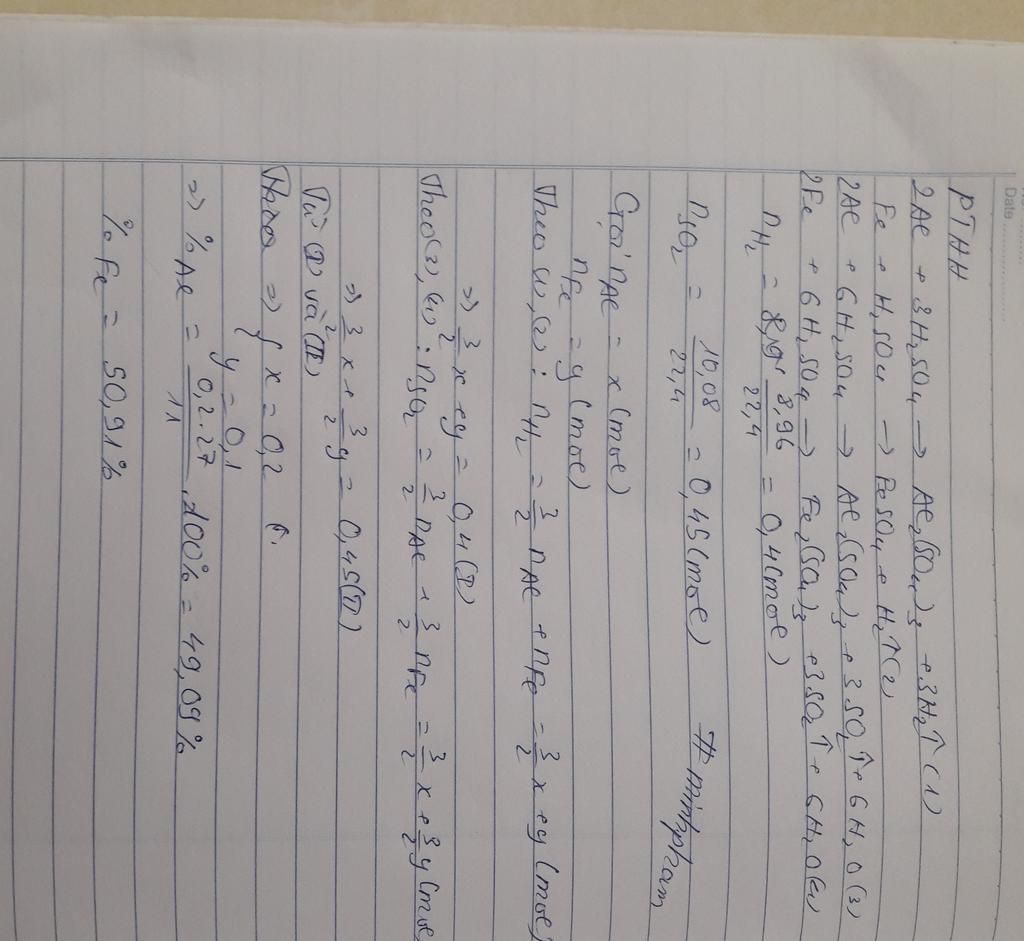 Date
PTHH
2Al + 3H₂SO₄ → Al₂(SO₄)₃ + 3H₂↑ (1)
Fe + H₂SO₄ → FeSO₄ + H₂↑(2)
2Al + 6H₂SO₄ → Al₂(SO₄)₃ + 3SO₂↑ + 6H₂O (3)
2Fe + 6H₂SO₄ → Fe₂(SO₄)₃ + 3SO₂↑ + 6H₂O(4)
nH₂ = 8,96/22,4 = 0,4(mol)
nSO₂ = 10,08/22,4 = 0,45(mol) #minhpham
Gọi nAl = x(mol)
nFe = y(mol)
Theo (1),(2): nH₂ = 3/2 nAl + nFe = 3/2 x + y (mol)
=> 3/2 x + y = 0,4(I)
Theo(3),(4): nSO₂ = 3/2 nAl + 3/2 nFe = 3/2 x + 3/2 y (mol)
=> 3/2 x + 3/2 y = 0,45(II)
Từ (I) và (II)
=> { x = 0,2
y = 0,1
=> %Al = 0,2.27/11 .100% = 49,09%
% Fe = 50,91%